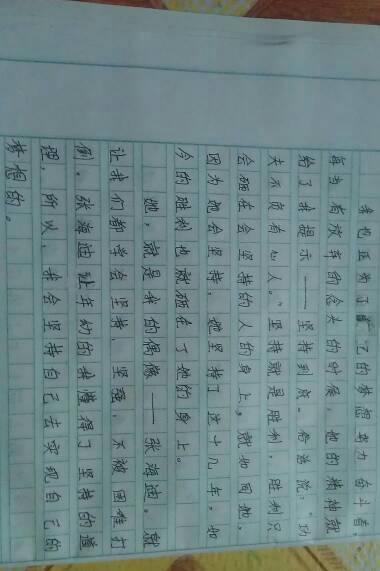 我也正为了自己的梦想努力奋斗着,
每当有放弃的念头的时候,他的精神就
给了我提示——坚持到底。俗话说:“功
夫不负有心人。”坚持就是胜利,胜利只
会砸在会坚持的人的身上。就如同她,
因为她会坚持,她坚持了这十几年,如
今的胜利也就砸在了她的身上。
她,就是我的偶像——张海迪。就
让我们都学会坚持、坚强,不被困难打
倒。张海迪让年幼的我懂得了坚持的道
理,所以,我会坚持自己去实现自己的
梦想的。